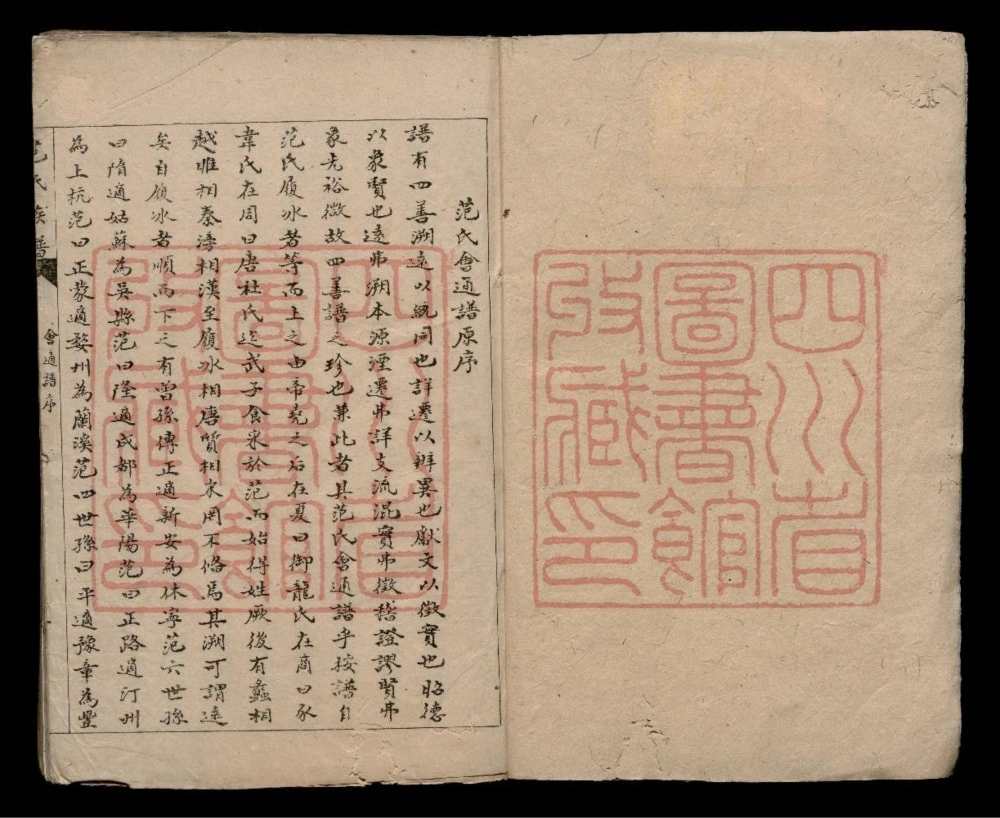 四川省
圖書館
攷藏印
范氏會通譜原序
譜有四善溯遠以統同也詳遷以辨異也獻文以徵實也昭德
以象賢也遠弗溯本源湮遷弗詳支流混實弗徵稽證謬賢弗
象光裕微故四善譜之珍也兼此者其范氏會通譜乎按譜自
范氏履冰者等而上之由帝堯之后在夏曰御龍氏在商曰豕
韋氏在周曰唐杜氏迄武子食采於范而始得姓厥後有蠡相
越雎相秦滂相漢至履冰相唐質相宋罔不俻焉其溯可謂遠
矣自履冰者順而下之有曾孫傳正適新安為休寧范六世孫
曰隋適姑蘇為吳縣范曰隆適成都為華陽范曰正路適汀州
為上杭范曰正蒙適婺州為蘭溪范四世孫曰平適豫章為豐
范氏族譜
會通譜序